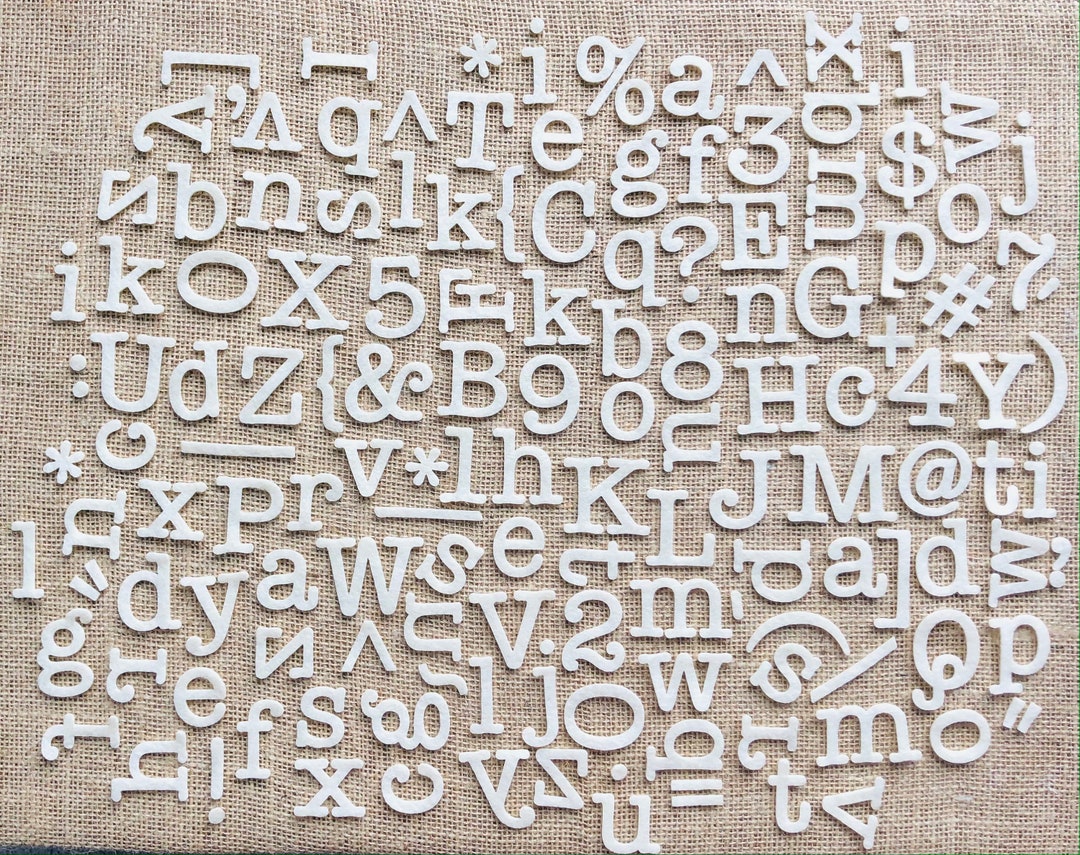 [ I * i % a ^ x i
y ' A q ^ T e g f 3 b $ w j
z b n s l k { C q ? E m p o
i k O X 5 E k b n G # 7 ;
: U d Z { & B 9 o 8 H c + 4 Y )
* c _ v * l h K u J M @ t i
l n x p r _ e t L d a ] d w ;
" d y a W s u V 2 m - ( \ Q p
g r z ^ ~ l j O w s
t e f s g y z o = r m o "
h ! x c u a t v